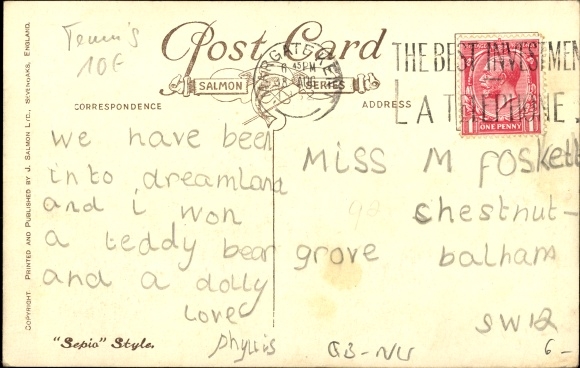 Tennis
10F
Post Card
SALMON SERIES
MARGATE KENT
45 PM
THE BEST INVESTMEN
A TELEPHONE
ONE PENNY
CORRESPONDENCE
ADDRESS
we have been
into dreamland
and i won
a teddy bear
and a dolly
Love
phyllis
Miss M Foskett
chestnut-
grove balham
SW12
98
GB-NU
6-
"Sepio" Style.
COPYRIGHT PRINTED AND PUBLISHED BY J. SALMON LTD., SEVENOAKS, ENGLAND.